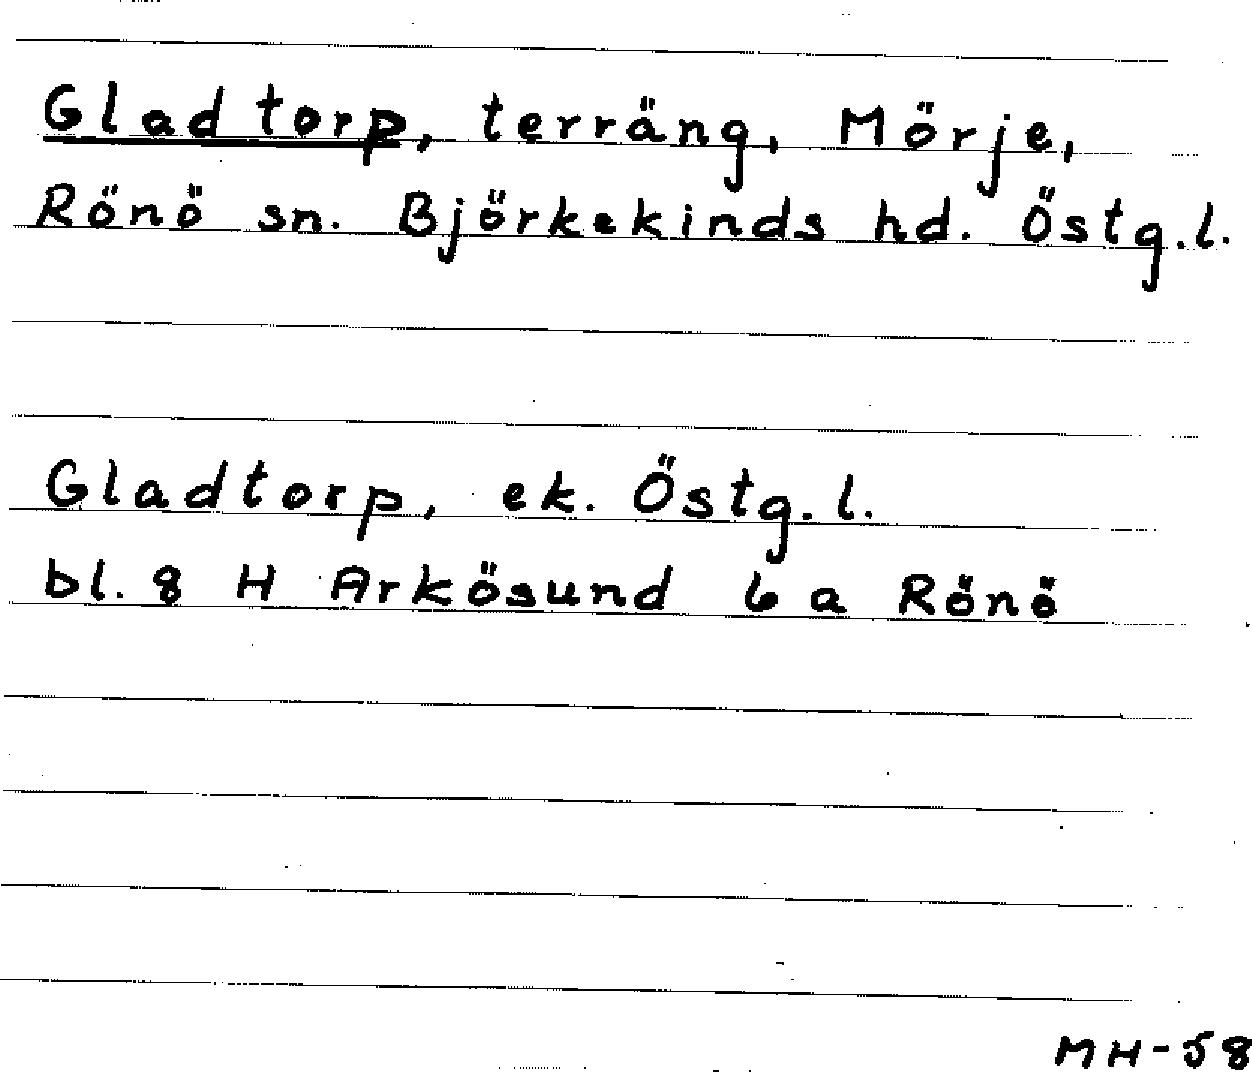 Gladtorp, terräng, Mörje,
Rönö sn. Björkekinds hd. Östg.l.
Gladtorp, ek. Östg.l.
bl. 8 H Arkösund 6 a Rönö
MH-58